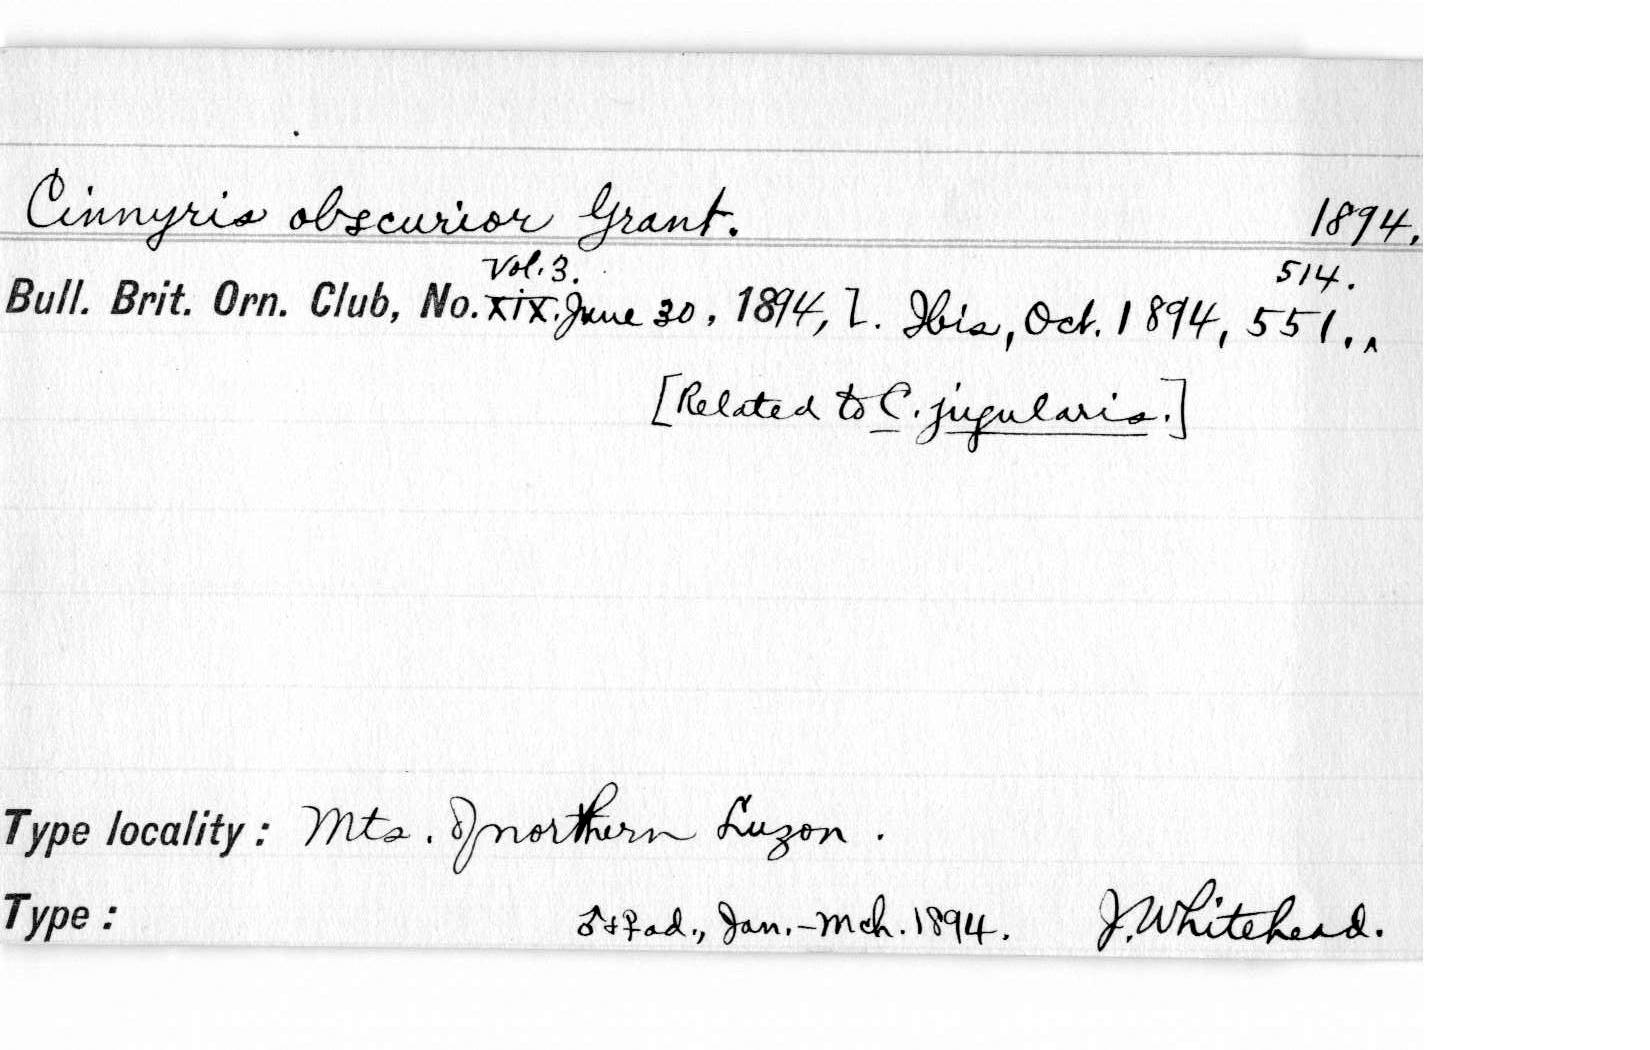 Cinnyris obscurior Grant. 1894.
Vol. 3. 514.
Bull. Brit. Orn. Club, No. XIX. June 30, 1894, l. Ibis, Oct. 1894, 551. ^
[Related to C. jugularis.]
Type locality: Mts. of northern Luzon.
Type: ♂ + ♀ ad., Jan.-Mch. 1894. J. Whitehead.